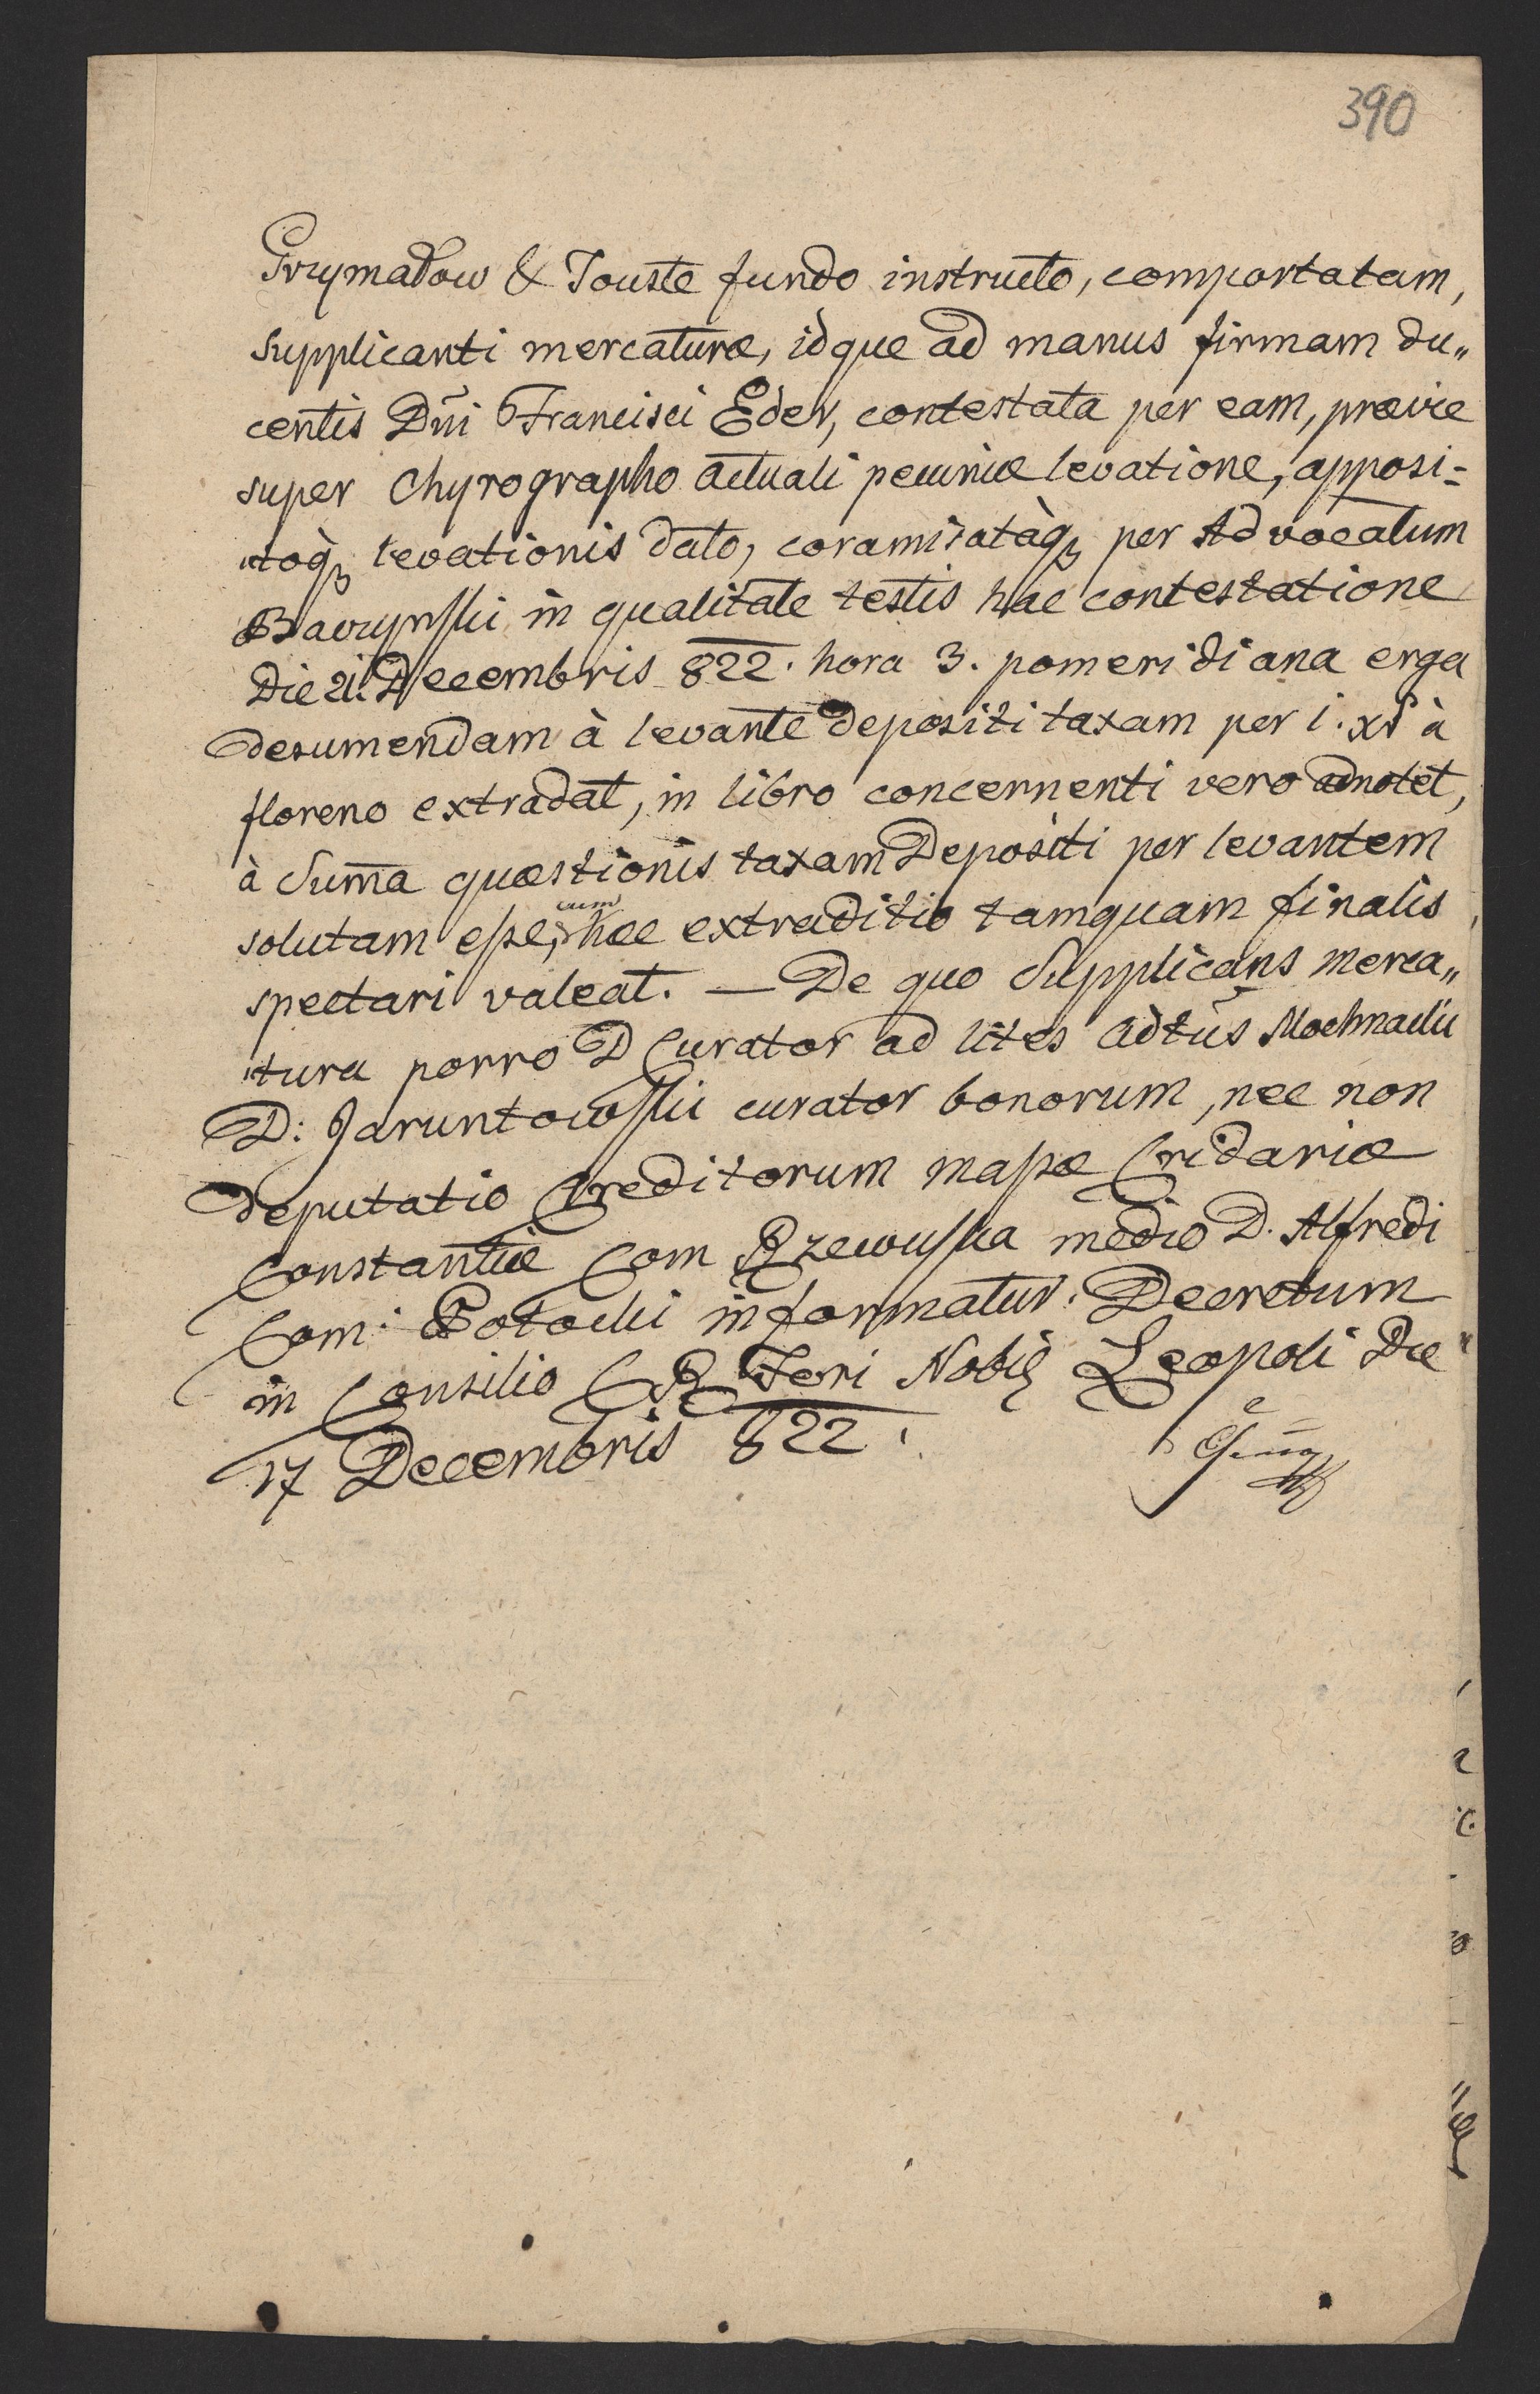 390
Grzymałow & Touste fundo instructo, comportatam,
supplicanti mercaturæ, idque ad manus firmam du„
centis Dñi Francisci Eder, contestata per eam, prævie
super Chyrographo actuali pecuniæ levatione, apposi=
„toq₃ levationis dato, coramisatàq₃ per Advocatum
Bavrynski in qualitate testis hac contestatione
Die 21. Decembris 822. hora 3. pomeridiana erga
desumendam à levante depositi taxam per 1. xr à
floreno extradat, in libro concernenti vero adnotet,
à Sum̄a quæstionis taxam Depositi per levantem
solutam esse, cum hæc extraditio tamquam finalis
spectari valeat. — De quo Supplicans merca„
„tura porro D Curator ad lites Adtus Mochnacki
D: Jaruntowski curator bonorum, nec non
deputatio Creditorum massæ Cridariæ
Constantiæ Com Rzewuska medio D. Alfredi
Com: Potocki informatur. Decretum
in Consilio C R Fori Nobil Leopoli Die
17 Decembris 822.